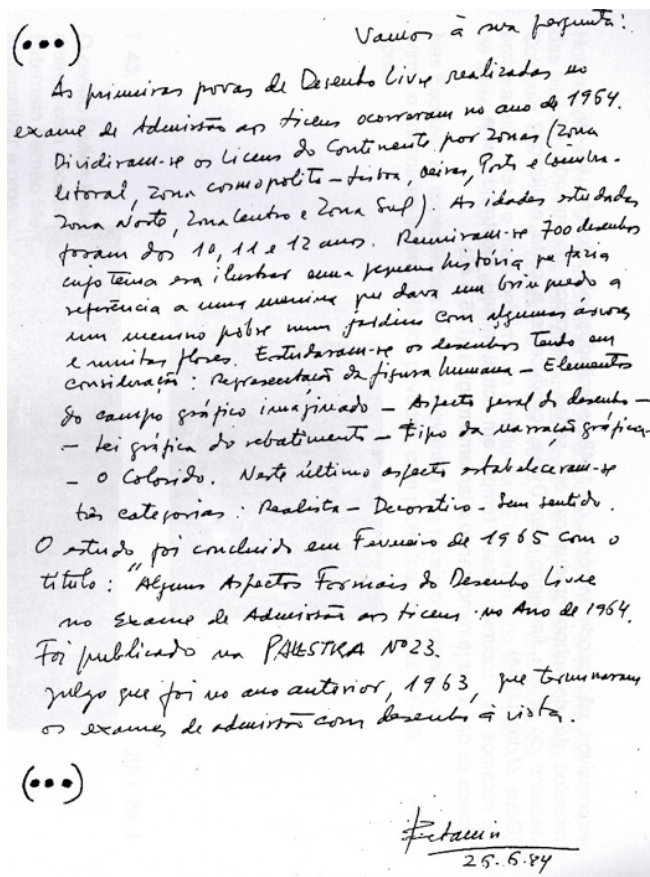 Vamos à sua pergunta:
(•••)
As primeiras provas de Desenho Livre realizadas no
exame de Admissão aos Liceus ocorreram no ano de 1964.
Dividiram-se os Liceus do Continente por zonas (Zona
litoral, Zona cosmopolita - Lisboa, Oeiras, Porto e Coimbra -
Zona Norte, Zona Centro e Zona Sul). As idades estudadas
foram dos 10, 11 e 12 anos. Reuniram-se 700 desenhos
cujo tema era ilustrar uma pequena história que fazia
referência a uma menina que dava um brinquedo a
um menino pobre num jardim com algumas árvores
e muitas flores. Estudaram-se os desenhos tendo em
consideração: Representação da figura humana - Elementos
do campo gráfico imaginado - Aspecto geral do desenho -
- Lei gráfica do rebatimento - Tipo da narração gráfica -
- O Colorido. Neste último aspecto estabeleceram-se
três categorias: Realista - Decorativo - Sem sentido.
O estudo foi concluído em Fevereiro de 1965 com o
título: "Alguns Aspectos Formais do Desenho Livre
no Exame de Admissão aos Liceus no Ano de 1964.
Foi publicado na PALESTRA Nº 23.
Julgo que foi no ano anterior, 1963, que terminaram
os exames de admissão com desenho à vista.
(•••)
25.6.84